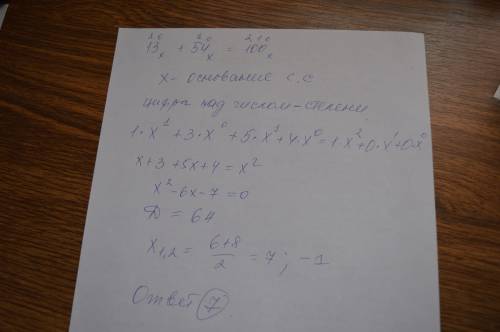 10 10 210
13ₓ + 54ₓ = 100ₓ
x - основание с.с
цифра над числом - степени
1·x¹+3·x⁰+5·x¹+4·x⁰=1·x²+0·x¹+0·x⁰
x+3+5x+4=x²
x²-6x-7=0
D=64
x₁,₂ = (6+8)/2 = 7; -1
Ответ 7